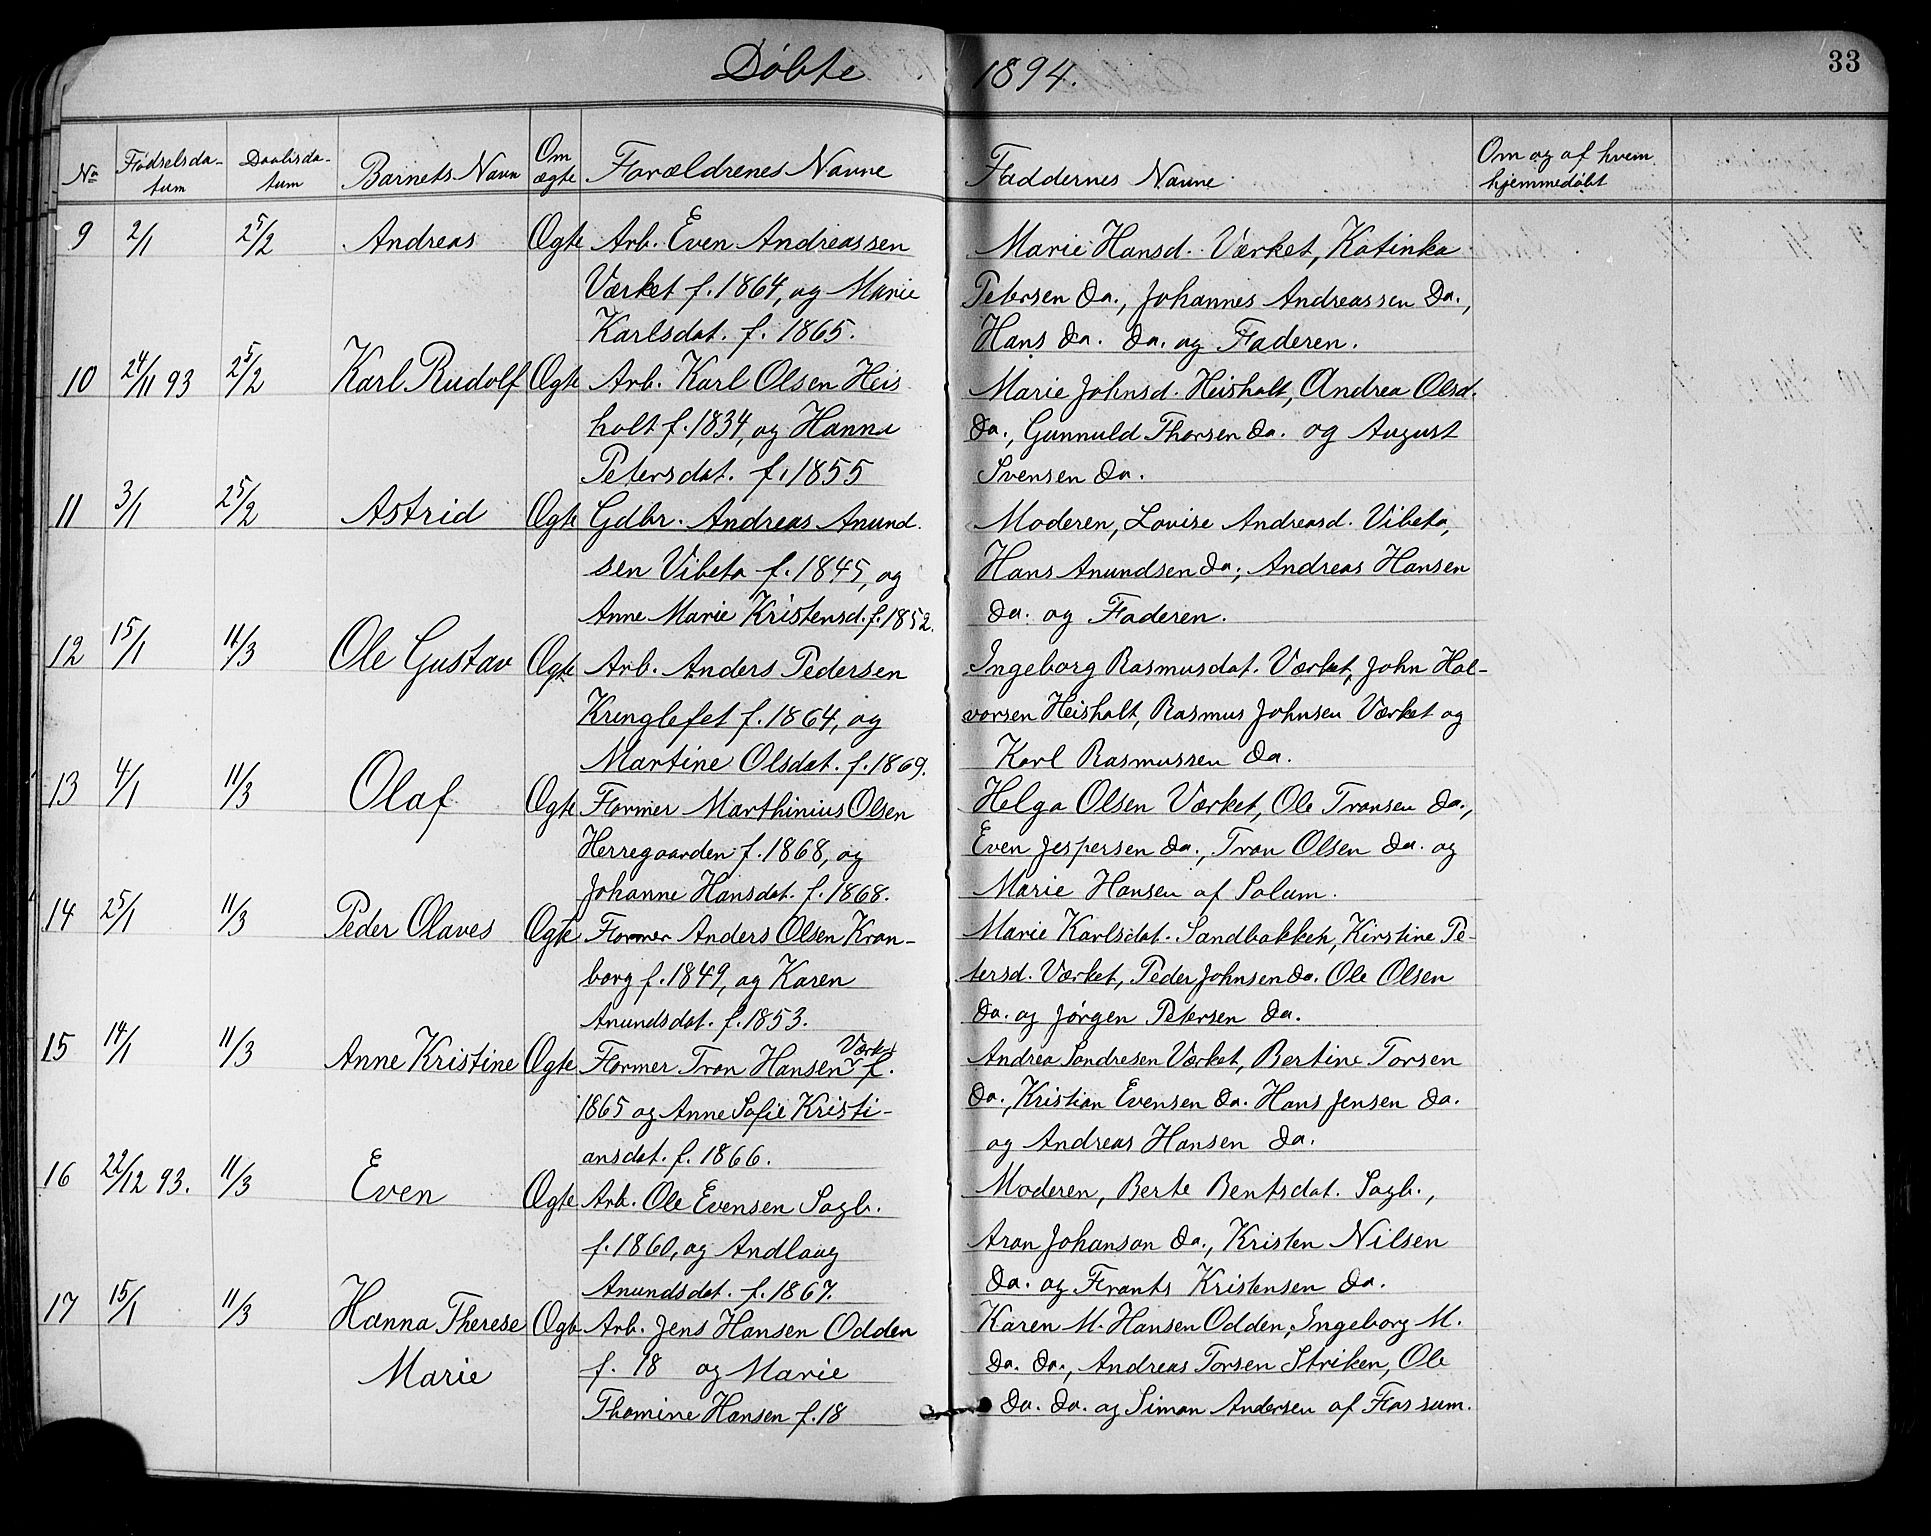 Døbte 1894. 33
No Fødselsdatum Daabsdatum Barnets Navn Om ægte Forældrenes Navne Faddernes Navne Om og af hvem hjemmedøbt
9 2/1 25/2 Andreas Ægte Arb. Even Andreassen Marie Hansd. Værket, Katinka
Værket f. 1864, og Marie Petersen do., Johannes Andreassen Do.,
Karlsdat. f. 1865. Hans do. do. og Faderen.
10 24/11 93 25/2 Karl Rudolf Ægte Arb. Karl Olsen Heis Marie Johnsd. Heisholt, Andrea Olsd.
holt f. 1834, og Hanna do., Gunnuld Thorsen do. og August
Petersdat. f. 1855 Svensen do.
11 3/1 25/2 Astrid Ægte Gdbr. Andreas Anund. Moderen, Lovise Andreasd. Vibeto,
sen Vibeto f. 1845, og Hans Anundsen do., Andreas Hansen
Anne Marie Kristensd. f. 1852. do. og Faderen.
12 15/1 11/3 Ole Gustav Ægte Arb. Anders Pedersen Ingeborg Rasmusdat. Værket, John Hal-
Kringlefet f. 1864, og vorsen Heisholt, Rasmus Johnsen Værket og
Martine Olsdat. f. 1869. Karl Rasmussen do.
13 4/1 11/3 Olaf Ægte Former Marthinius Olsen Helga Olsen Værket, Ole Tronsen do.,
Herregaarden f. 1868, og Even Jespersen do., Tron Olsen do. og
Johanne Hansdat. f. 1868. Marie Hansen af Solum.
14 25/1 11/3 Peder Olaves Ægte Former Anders Olsen Kron- Marie Karlsdat. Sandbakken, Kirstine Pe-
borg f. 1849, og Karen tersd. Værket, Peder Johnsen do. Ole Olsen
Anundsdat. f. 1853. do. og Jørgen Petersen do.
15 14/1 11/3 Anne Kristine Ægte Former Tron Hansen Værket f. Andrea Sondresen Værket, Bertine Torsen
1865 og Anne Sofie Kristi- do., Kristian Evensen do. Hans Jensen do.
ansdat. f. 1866. og Andreas Hansen do.
16 22/12 93. 11/3 Even Ægte Arb. Ole Evensen Sagb. Moderen, Berte Bentsdat. Sagb.,
f. 1860, og Andlaug Aron Johanson do., Kristen Nilsen
Anundsdat. f. 1867. do. og Frants Kristensen do.
17 15/1 11/3 Hanna Therese Ægte Arb. Jens Hansen Odden Karen M. Hansen Odden, Ingeborg M.
Marie f. 18 og Marie do. do., Andreas Torsen Striken, Ole
Thomine Hansen f. 18 do. do. og Simon Andersen af Fossum.